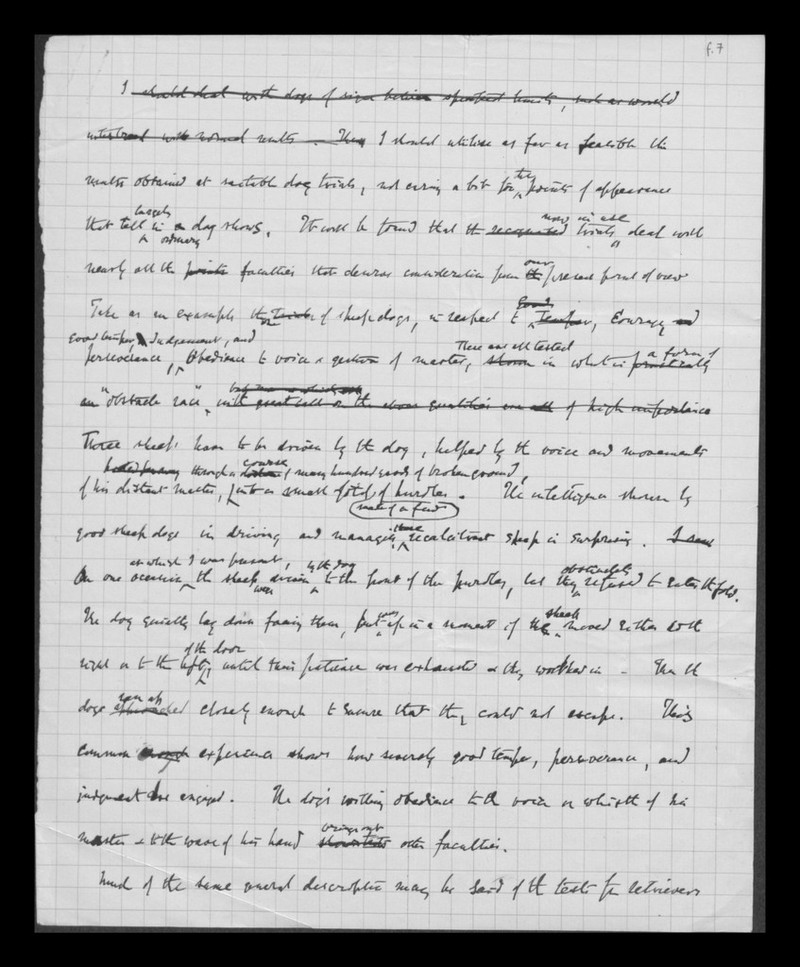 f.7
I should deal with dogs of
I should utilise as far as feasible the
results obtained at suitable dog trials, not caring a bit for the points of appearance
largely now in use
that tell in ordinary dog shows. It will be found that the recognised trials deal with
our
nearly all the points faculties that deserve consideration from the present point of view
Good
Take as an example the trials of sheep dogs, in respect to Temper, Courage and
good temper, Judgement, and There are all tested a form of
perseverance, Obedience to voice & gesture of master, shown in what is practically
an "obstacle race" with great all of high importance
Three sheep have to be driven by the dog, helped by the voice and movements
through a course of many hundred yards of broken ground,
of his distant master, into a small fold of hurdles. The intelligence shown by
made of a few
good sheep dogs in driving and managing these recalcitrant sheep is surprising. I saw
at which I was present, by the dog obstinately
On one occasion the sheep were driven to the front of the hurdles, but they refused to enter the fold.
The dog quietly lay down facing them, but was up in a moment if the sheep moved either to the
of the door
right or to the left, until their patience was exhausted & they walked in. Then the
ran up
dogs approached closely enough to ensure that they could not escape. This
common experience shows how severely good temper, perseverance, and
judgment are engaged. The dog's willing obedience to the voice or whistle of his
brings out
master & to the wave of his hand other faculties.
Much of the same general description may be said of the tests for retrievers